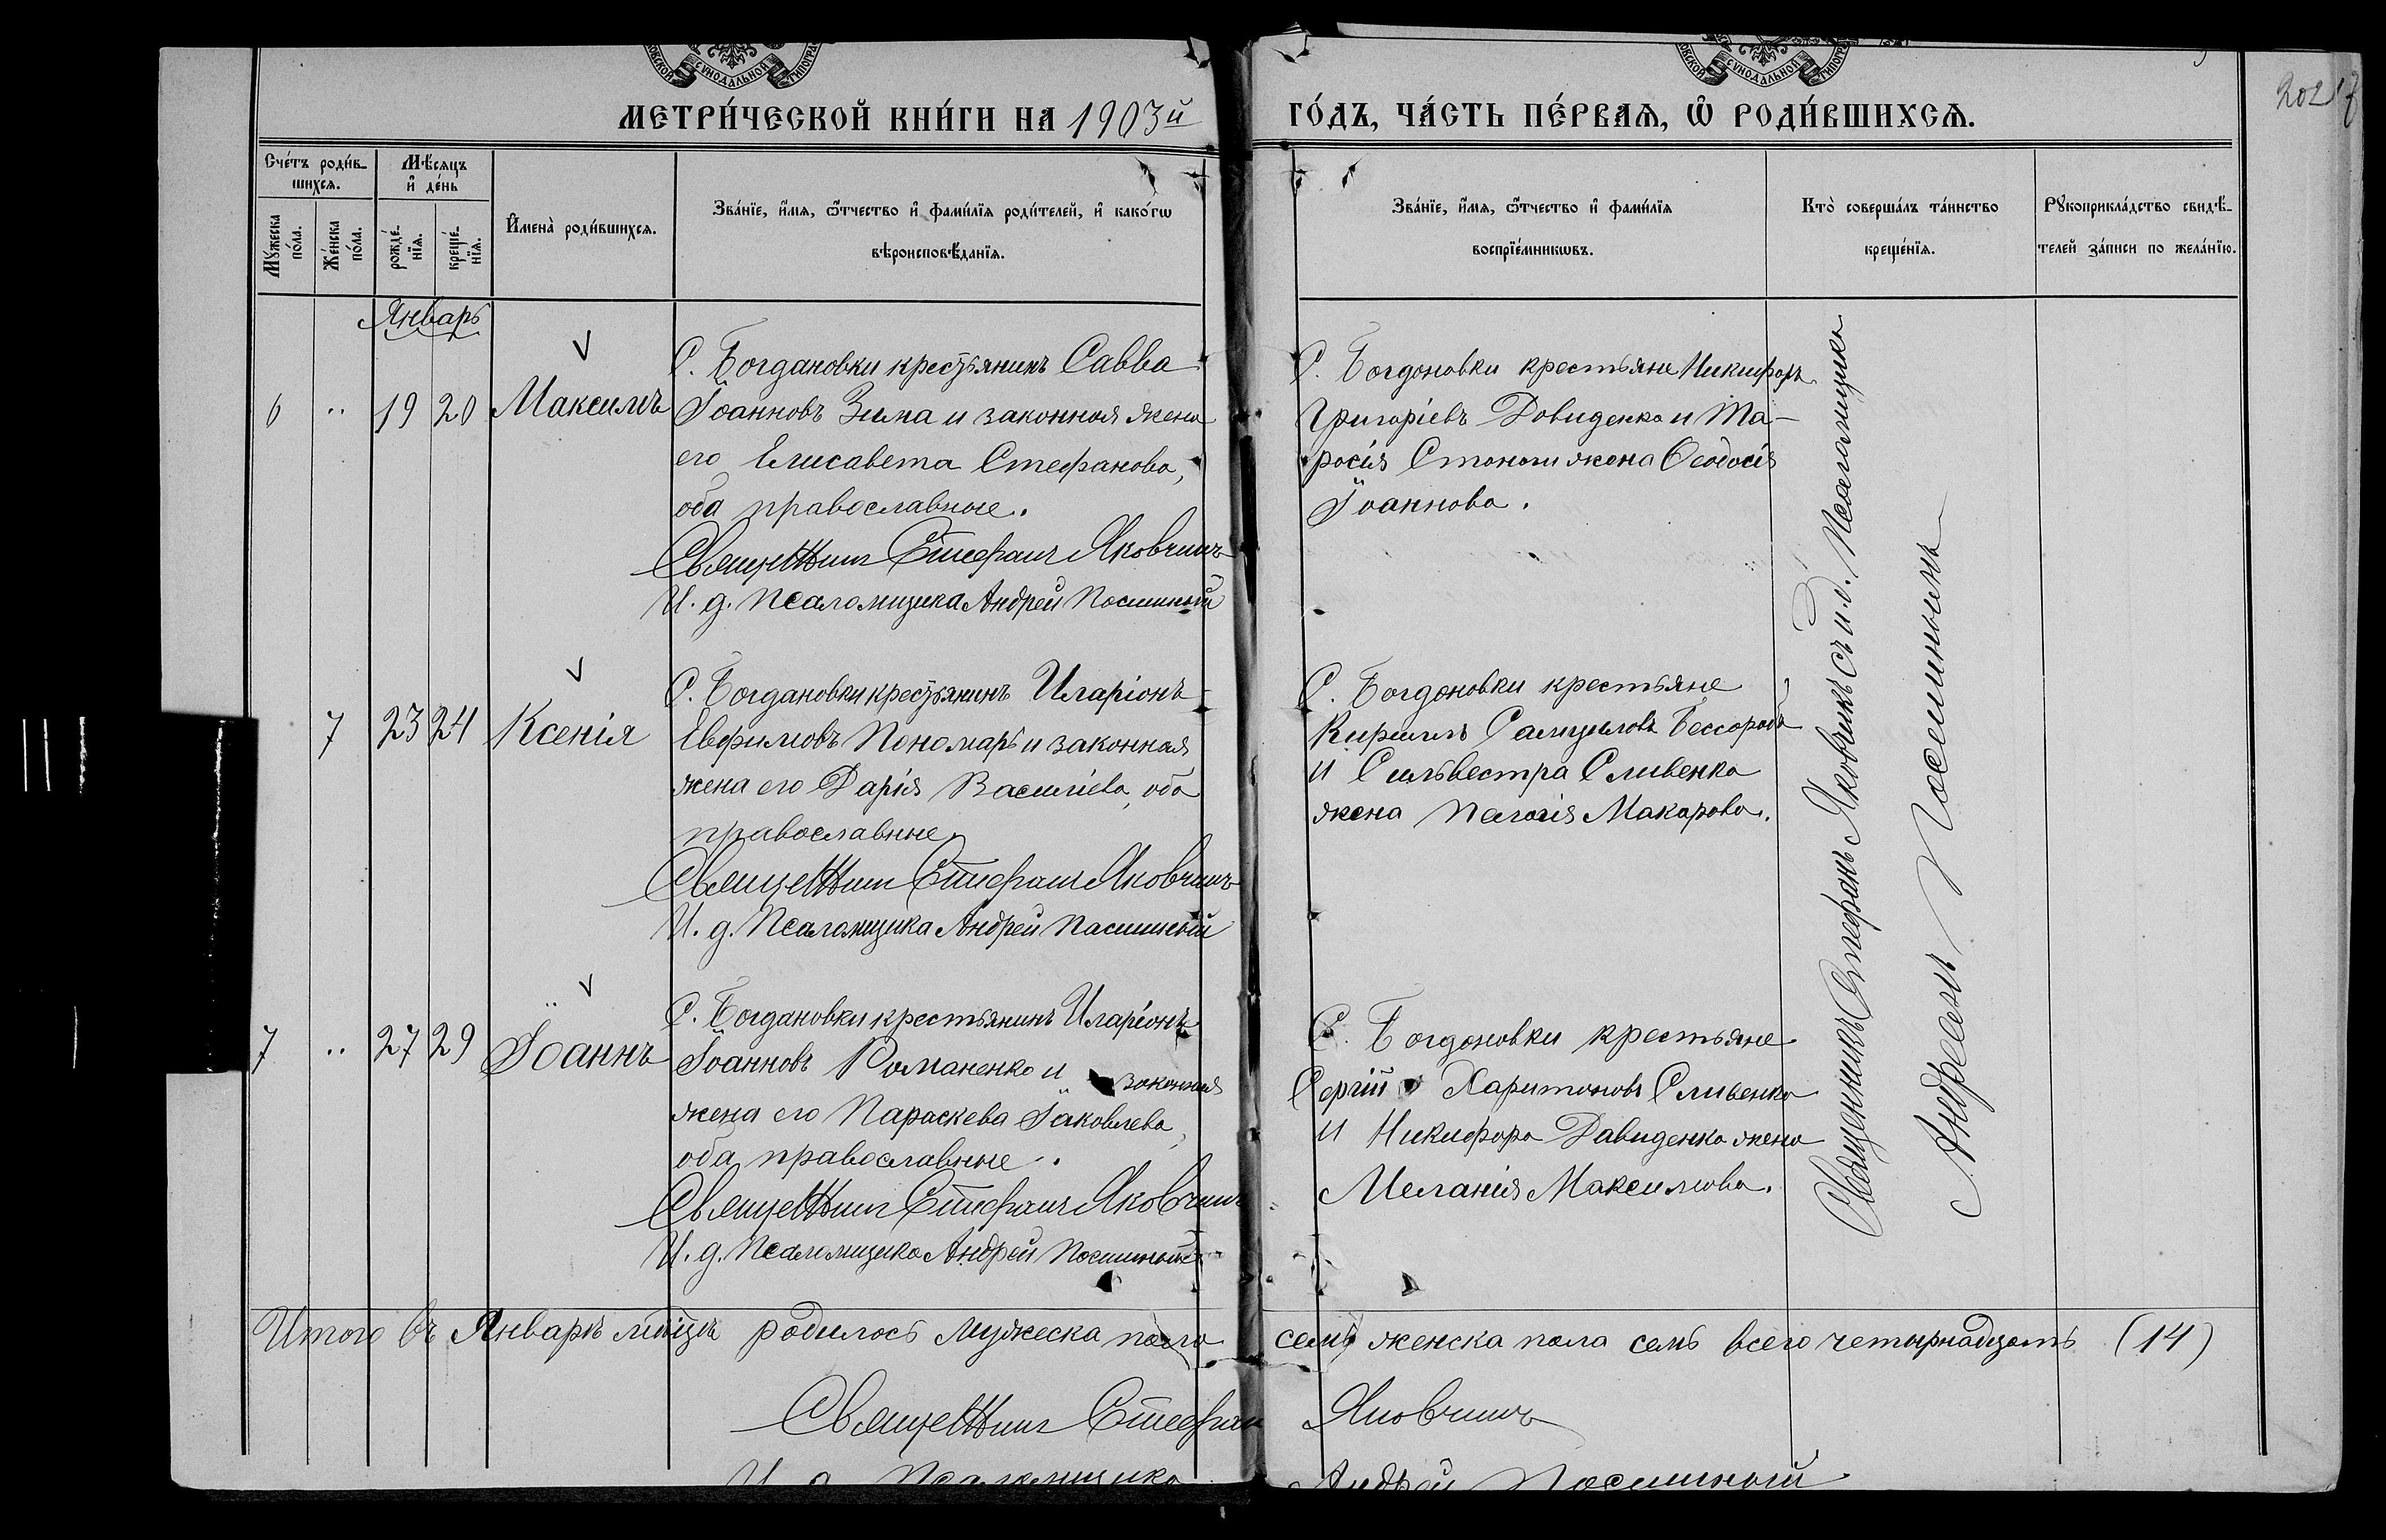 МЕТРИ́ЧЕСКОЙ КНИ́ГИ НА 1903й ГО́ДЪ, ЧА́СТЬ ПЕ́РВАЯ, Ѡ҆ РОДИ́ВШИХСЯ.
Сче́тъ роди́в-
шихся.
Мѣ́сяцъ
и҆ де́нь
Мꙋ́жеска
по́ла.
Же́нска
по́ла.
рожде́-
нїя.
креще́-
нїя.
И҆мена̀ роди́вшихся.
Зва́нїе, и҆́мя, ѻ҆́тчество и҆ фами́лїя роди́телей, и҆ како́гѡ
вѣроисповѣ́данїя.
Зва́нїе, и҆́мя, ѻ҆́тчество и҆ фами́лїя
воспрїе́мникѡвъ.
Кто̀ соверша́лъ та́инство
креще́нїя.
Рꙋкоприкла́дство свидѣ́-
телей за́писи по жела́нїю.
Январь
6 " 19 20 Максимъ
С. Богдановки крестьянинъ Савва
Іоанновъ Зима и законная жена
его Елисавета Стефанова,
оба православные.
Священникъ Стефанъ Яковчикъ
И. д. Псаломщика Андрей
С. Богдановки крестьяне Никифоръ
Григоріевъ Довиденко и Та-
расія жена Ѳеодосія
Іоаннова.
7 23 24 Ксенія
С. Богдановки крестьянинъ Иларіонъ
Евфимовъ Пономарь и законная
жена его Дарія Василіева, оба
православные.
Священникъ Стефанъ Яковчикъ
И. д. Псаломщика Андрей
С. Богдановки крестьяне
Кириллъ Самуиловъ
и Сильвестра Сливенка
жена Макарова.
7 " 27 29 Іоаннъ
С. Богдановки крестьянинъ Иларіонъ
Іоанновъ Романенко и законная
жена его Параскева Іаковлева,
оба православные.
Священникъ Стефанъ Яковчикъ
И. д. Псаломщика Андрей
С. Богдановки крестьяне
Сергій Харитоновъ Сливенко
и Никифора Давиденка жена
Меланія Максимова.
Священникъ Стефанъ Яковчикъ съ и. д. Псаломщика
Андреемъ
Итого въ Январѣ мѣсяцѣ родилось мужеска пола семь женска пола семь всего четырнадцать (14)
Священникъ Стефанъ Яковчикъ
И. д. Псаломщика Андрей